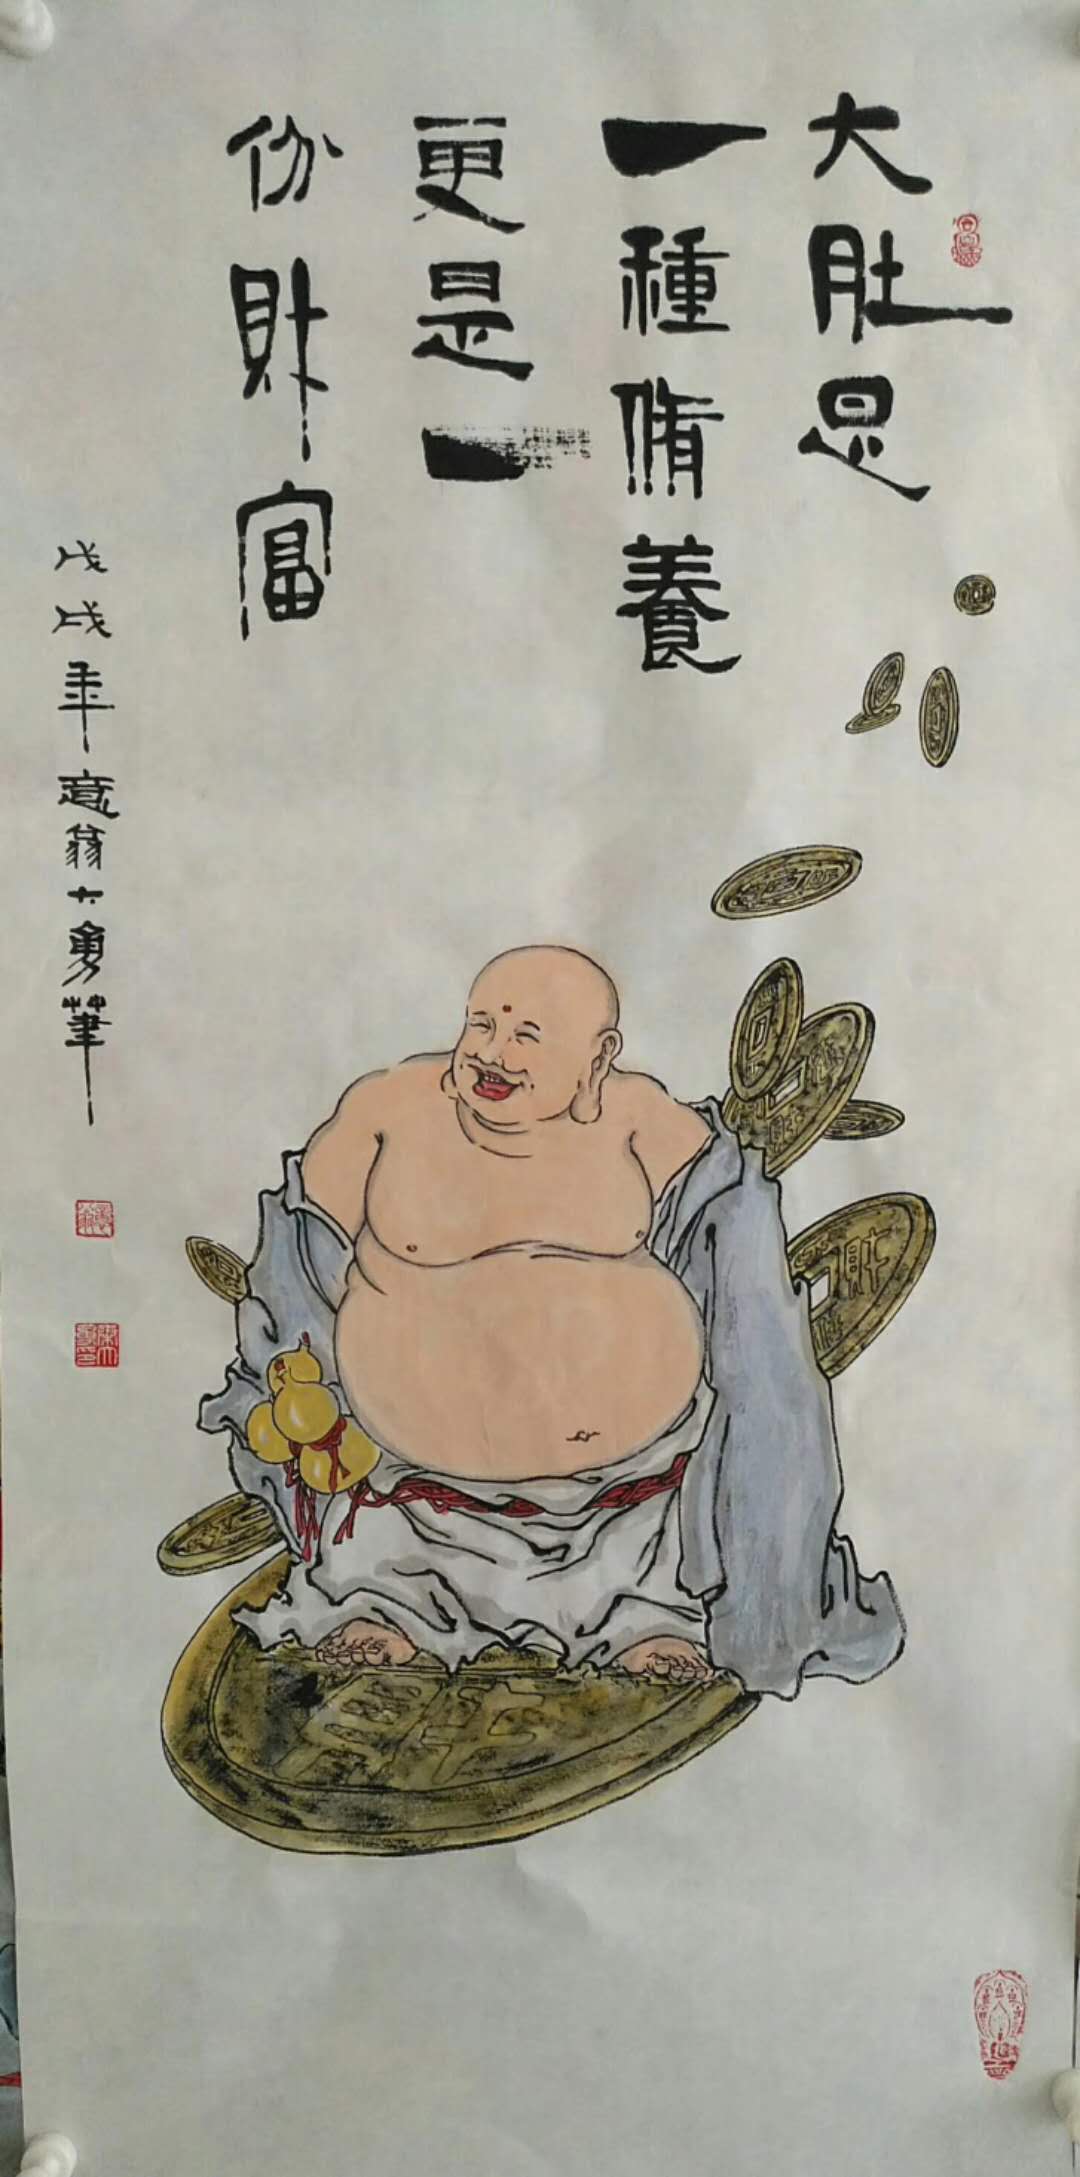 大肚是
一種脩養
更是一
份財富
戊戌年意翁大勇筆